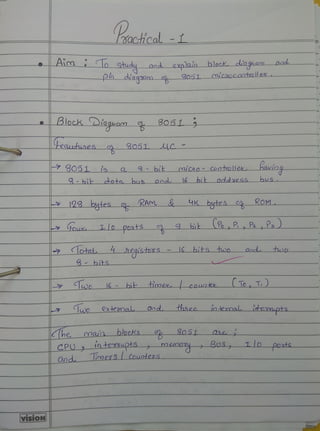 Practical - 1
• Aim : To study and explain block diagram and
pin diagram of 8051 microcontroller.
• Block Diagram of 8051 ;
Feautures of 8051 μC -
→ 8051 is a 8-bit micro-controller having
8-bit data bus and 16 bit address bus.
→ 128 bytes of RAM & 4K bytes of ROM.
→ Four I/O ports of 8 bit (P0, P1, P2, P3)
→ Total 4 registers - 16 bits two and two
8-bits.
→ Two 16-bit timer / counter (T0, T1)
→ Two external and three internal interrupts
The main blocks of 8051 are ;
CPU, interrupts, memory, BUS, I/O ports
and Timers / counters.
vision